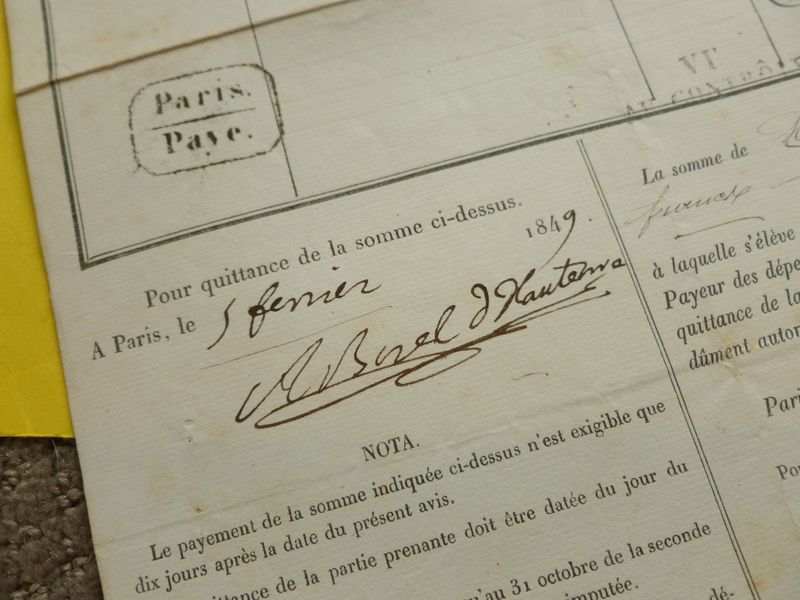 Paris.
Paye.
VU
AU CONTRÔ
Pour quittance de la somme ci-dessus.
A Paris, le 5 fevrier 1849.
A Borel d'Hauterive
NOTA.
Le payement de la somme indiquée ci-dessus n'est exigible que
dix jours après la date du présent avis.
ittance de la partie prenante doit être datée du jour du
qu'au 31 octobre de la seconde
imputée.
dé-
La somme de
francs
à laquelle s'élève
Payeur des dépe
quittance de la
dûment autor
Pari
Po